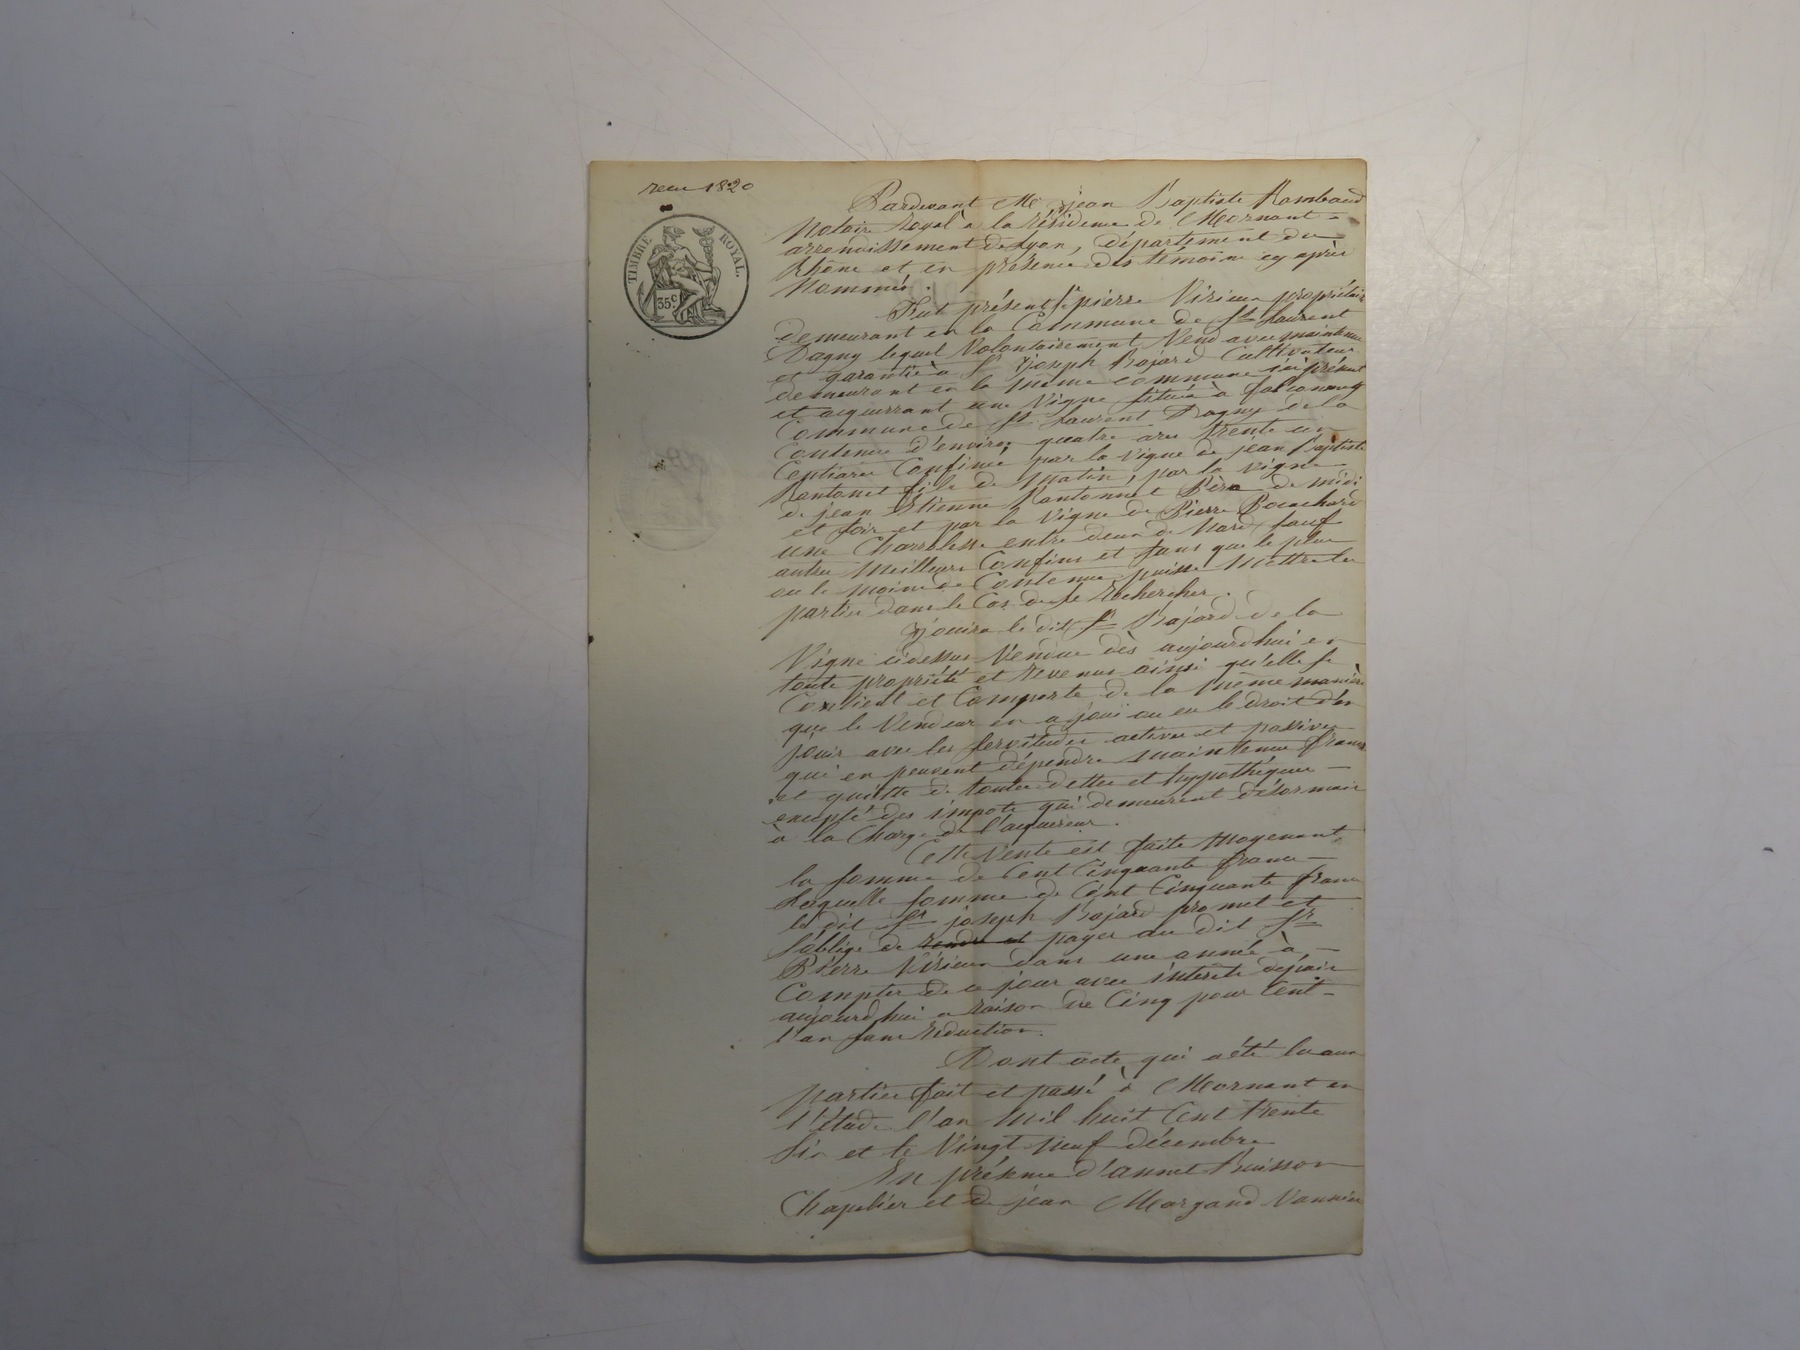 reçu 1820
TIMBRE ROYAL.
35c.
Pardevant Me jean Baptiste Rambaud
Notaire Royal à la résidence de Mornant
arrondissement de Lyon, département du
Rhône et en présence des témoins cy après
Nommés.
Fut présent Sr pierre Virieux propriétaire
demeurant en la Commune de St Laurent
Dagny lequel Volontairement Vend avec maintenue
et garantie à Sr joseph Bajard Cultivateur
demeurant en la même commune ici présent
et acquerrant une Vigne située à
Commune de St Laurent Dagny de la
Contenue d'environ quatre ares trente un
Centiares Confinée par la vigne de jean Baptiste
fils de matin, par la vigne
de jean Etienne Père de midi
et soir et par la Vigne de Pierre Bouchard
une entre deux de Nord, sauf
autres Meilleurs Confins et sans que le plus
ou le moins de Contenue puisse Mettre les
parties dans le Cas de se Rechercher.
jouira le dit Sr Bajard de la
Vigne cidessus Vendue dès aujourd'hui en
toute propriété et revenus ainsi qu'elle se
Contient et Comporte de la même manière
que le Vendeur en a joui ou eu le droit d'en
jouir avec les servitudes actives et passives
qui en peuvent dépendre maintenue franche
et quitte de toutes dettes et hypothèques
excepté des impots qui demeurent désormais
à la Charge de l'aquéreur.
Cette Vente est faite Moyenant
la somme de Cent Cinquante francs
Laquelle somme de Cent Cinquante francs
le dit Sr joseph Bajard promet et
s'oblige de rendre et payer au dit Sr
Pierre Virieux dans une année à
Compter de ce jour avec intérêts depuis
aujourdhui a raison de Cinq pour Cent
l'an sans réduction.
Dont acte qui a été lu aux
parties fait et passé à Mornant en
l'étude l'an Mil huit Cent trente
Six et le Vingt neuf décembre
En présence d'annet Buisson
Chapelier et de jean Morgand Vannier